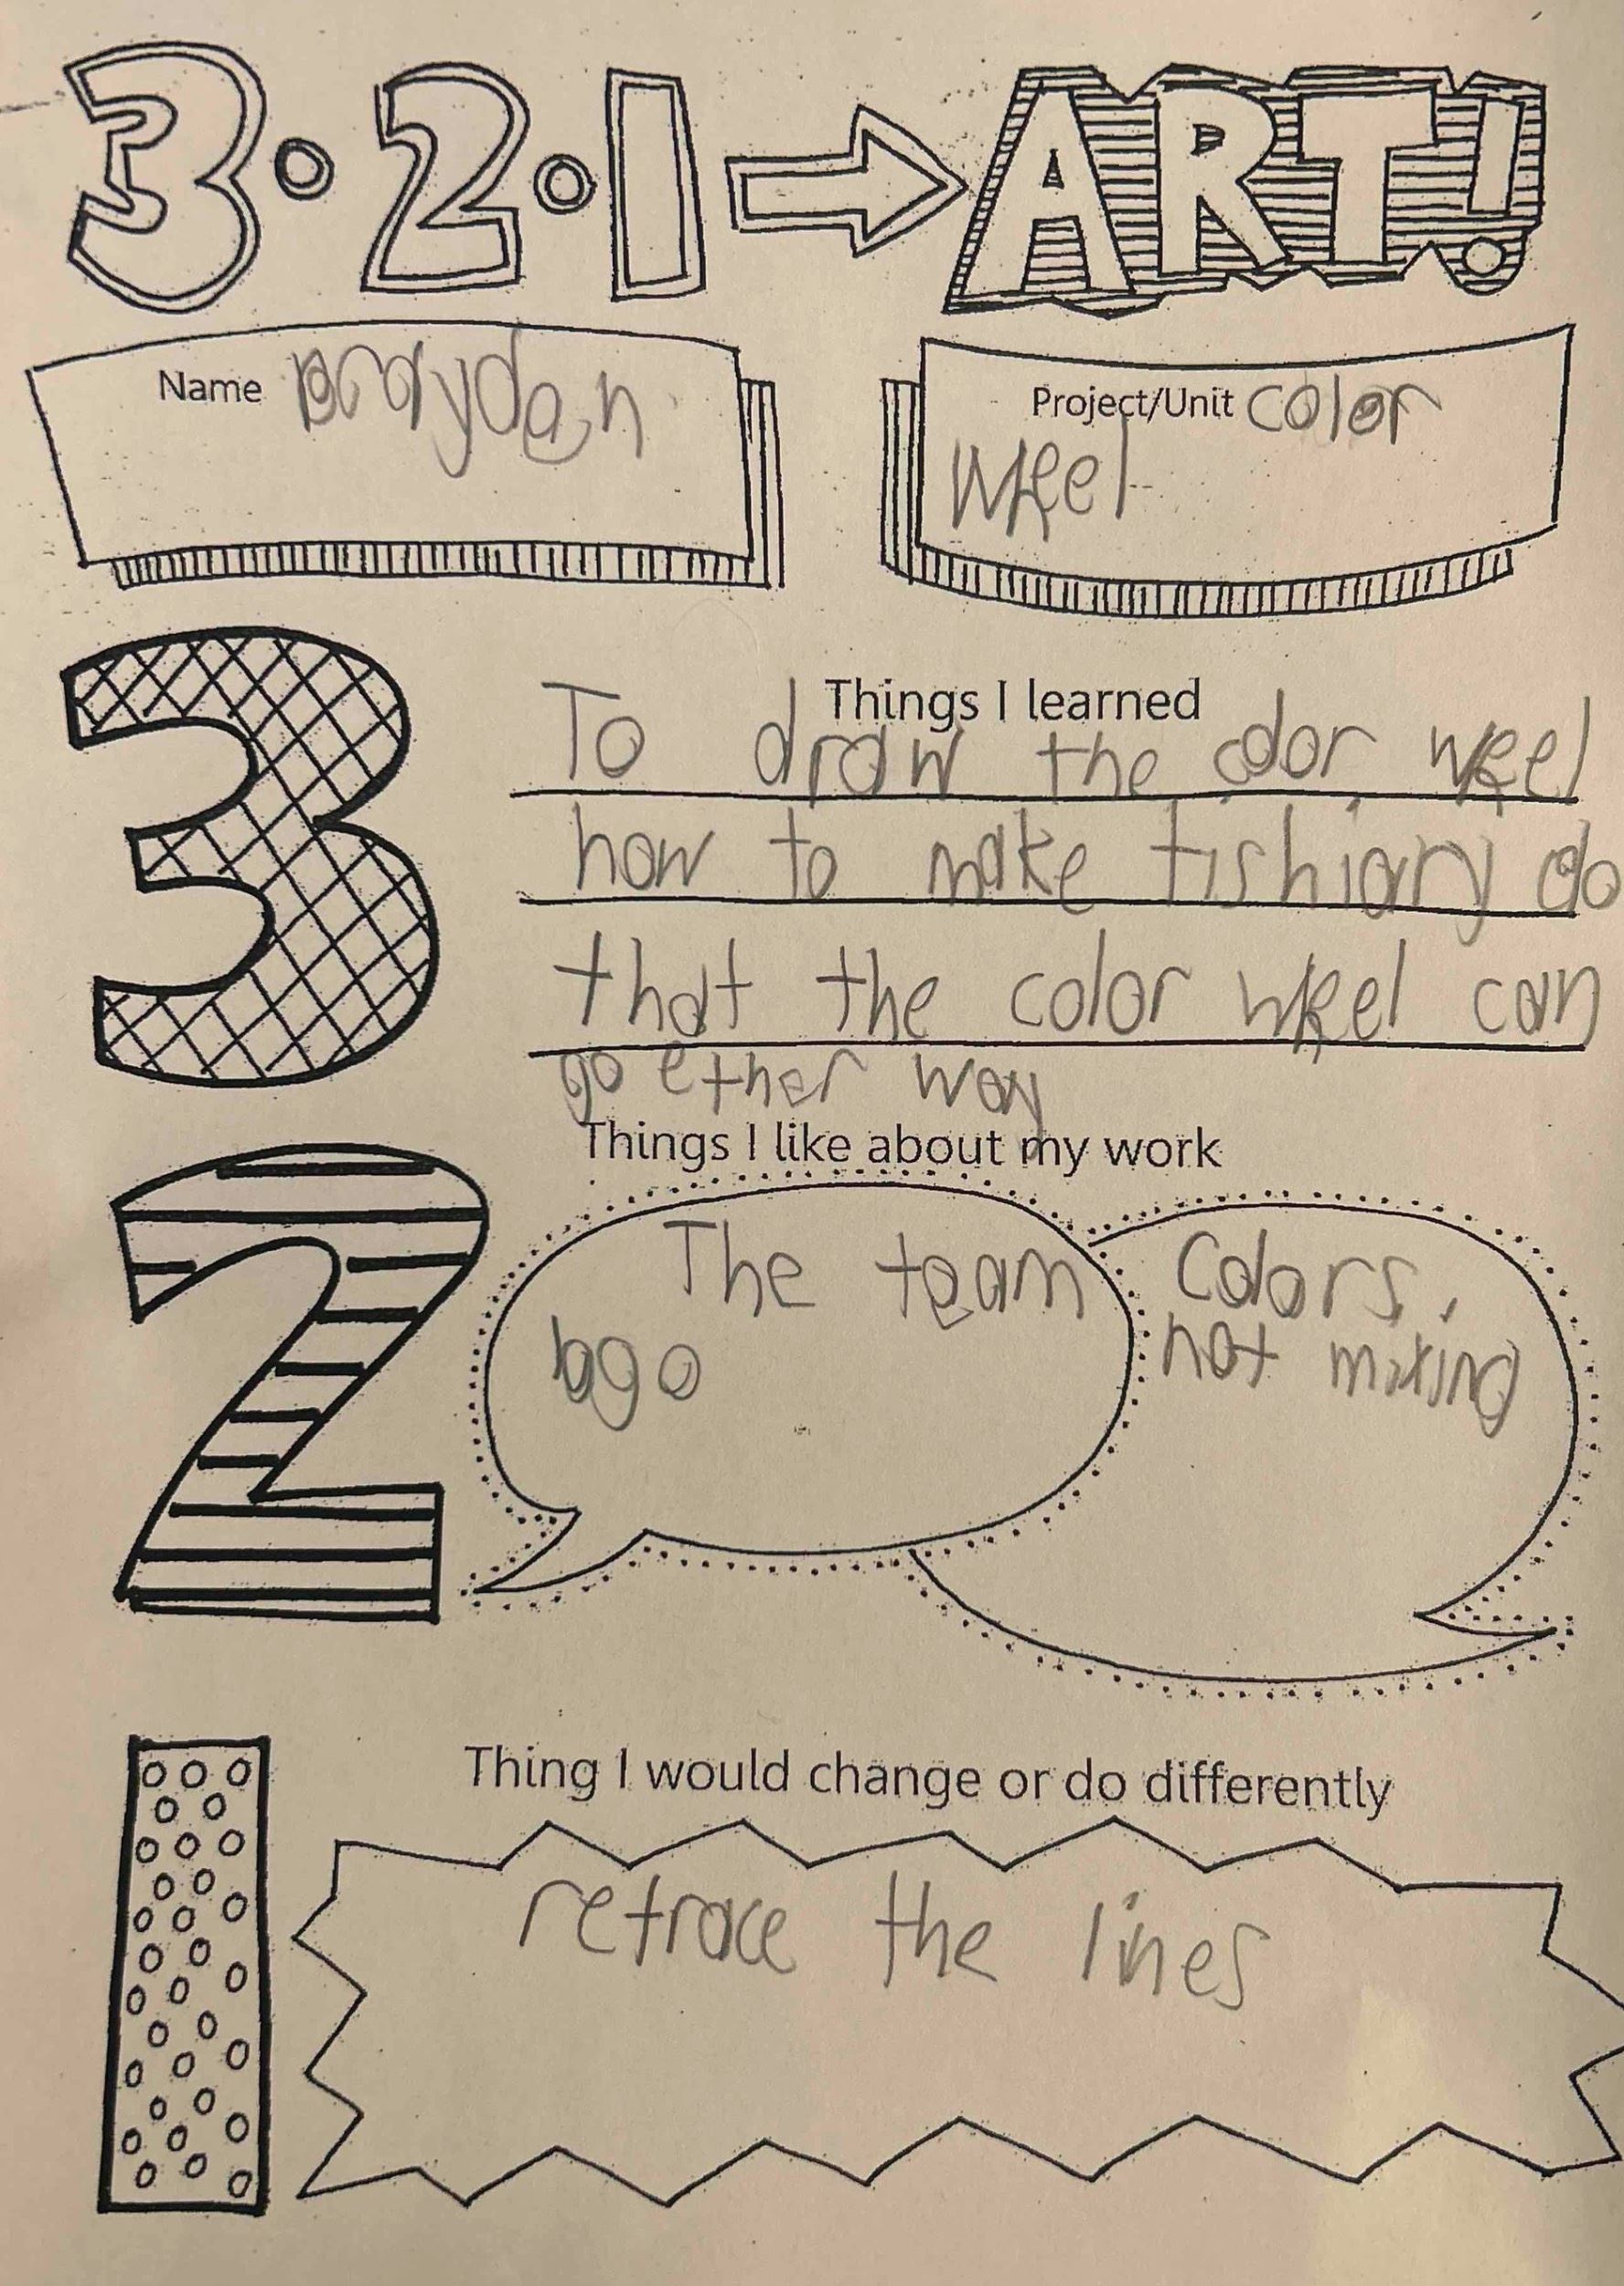 3·2·1 → ART!
Name Brayden
Project/Unit color
wheel
Things I learned
To draw the color wheel
how to make tishiary co
that the color wheel can
go ether way
Things I like about my work
The team
logo
Colors,
not mixing
Thing I would change or do differently
retrace the lines